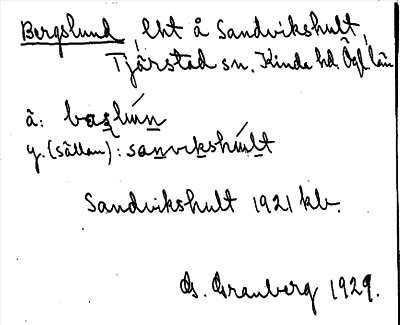 Bergslund, lht å Sandvikshult,
Tjärstad sn. Kinda hd. Ögl. län
ä:
y. (sällan):
Sandvikshult 1921 kb.
G. Granberg 1929.